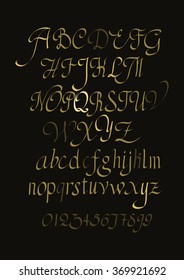 ABCDEFG
HIJKLM
NOPQRSTUV
WXYZ
abcdefghijklm
nopqrstuvwxyz
0123456789
shutterstock.com · 369921692